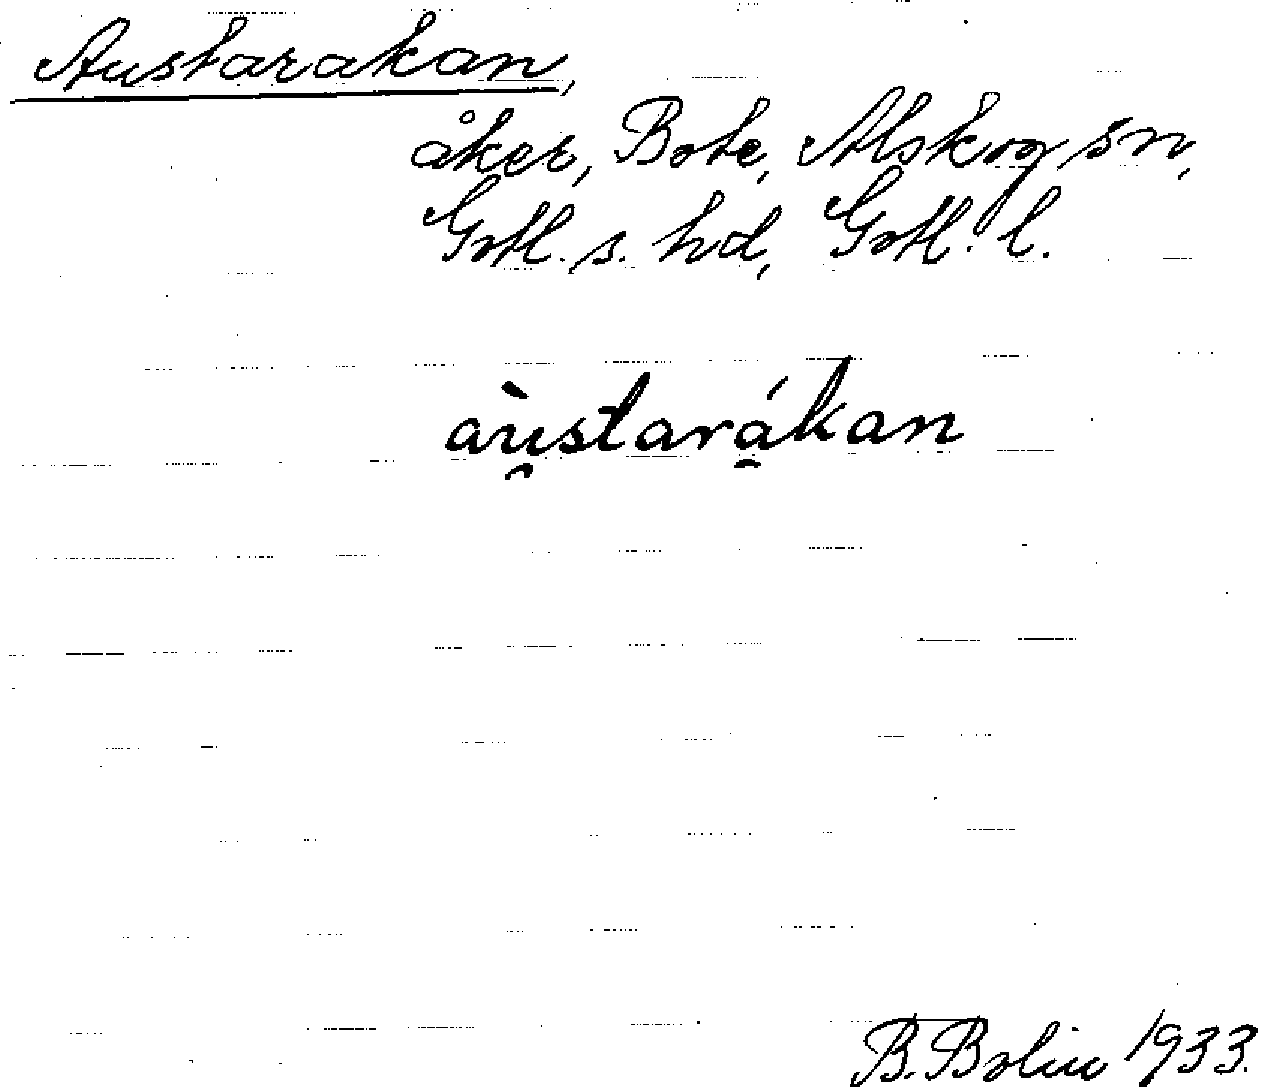 Austarakan,
åker, Bote, Alskog sn,
Gotl. s. hd, Gotl. l.
aù̯stará̱kan
B. Bolin 1933.